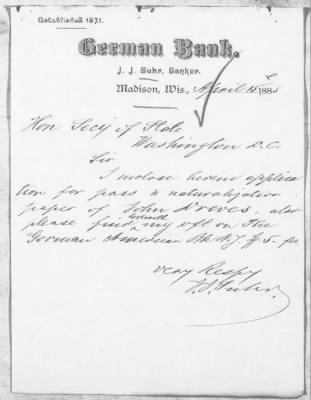 Established 1871.
German Bank.
J. J. Suhr, Banker.
Madison, Wis., April 188
Hon Secy of State
Washington D.C.
Sir
I inclose herein applica
tion for pass & naturalization
paper of John Dreves, also
please find herewith my dft on The
German American Bk N.Y. $5. for
very Respy
J.J. Suhr.